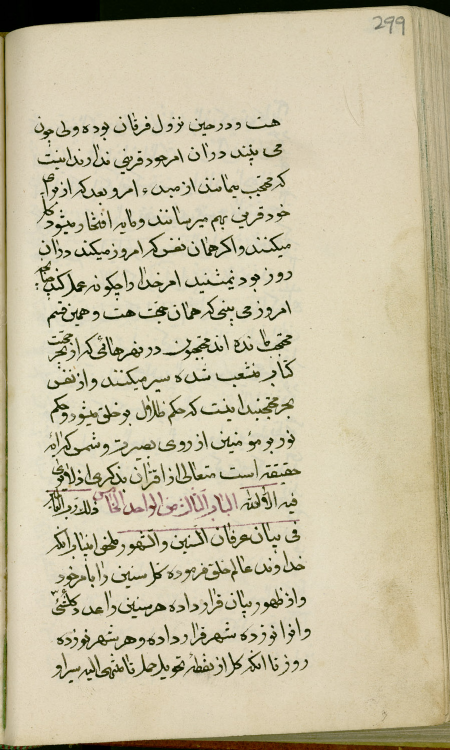 299
هست و در حین نزول فرقان بوده ولی چون
می بینند در آن امر خود قرینی ندارند اینست
که محتجب میمانند از مبدء امر و بعد که از برای
خود قرین بهم میرسانند و مایه افتخار میشود
میکنند و اگر همان نفس که امروز میکند در آن
روز بود نمیشنید امر خدا را چگونه عمل کند چنانچه
امروز می بینی که همان حجت هست و همین قسم
محتجب مانده اند محتجبون در نهرهائی که از بحر
کتاب منشعب شده سیر میکنند و از نفس
بحر محتجبند اینست که حکم ظلال بر خلق میشود و حکم
نور بر مؤمنین از روی بصیرت و شمس که
حقیقة است متعالی از اقتران بذکری
فیه الأفئدة الباب الثالث من الواحد الخامس
فی بیان عرفان السنین و الشهور ملخص اینباب آنکه
خداوند عالم خلق فرموده کل سنین را بامر خود
و از ظهور بیان قرار داده هر سنین را عدد کلشیئ
و انرا نوزده شهر قرار داده و هر شهر نوزده
روز تا آنکه کل از نقطه تحویل حمل تا منتهی الیه سیر او